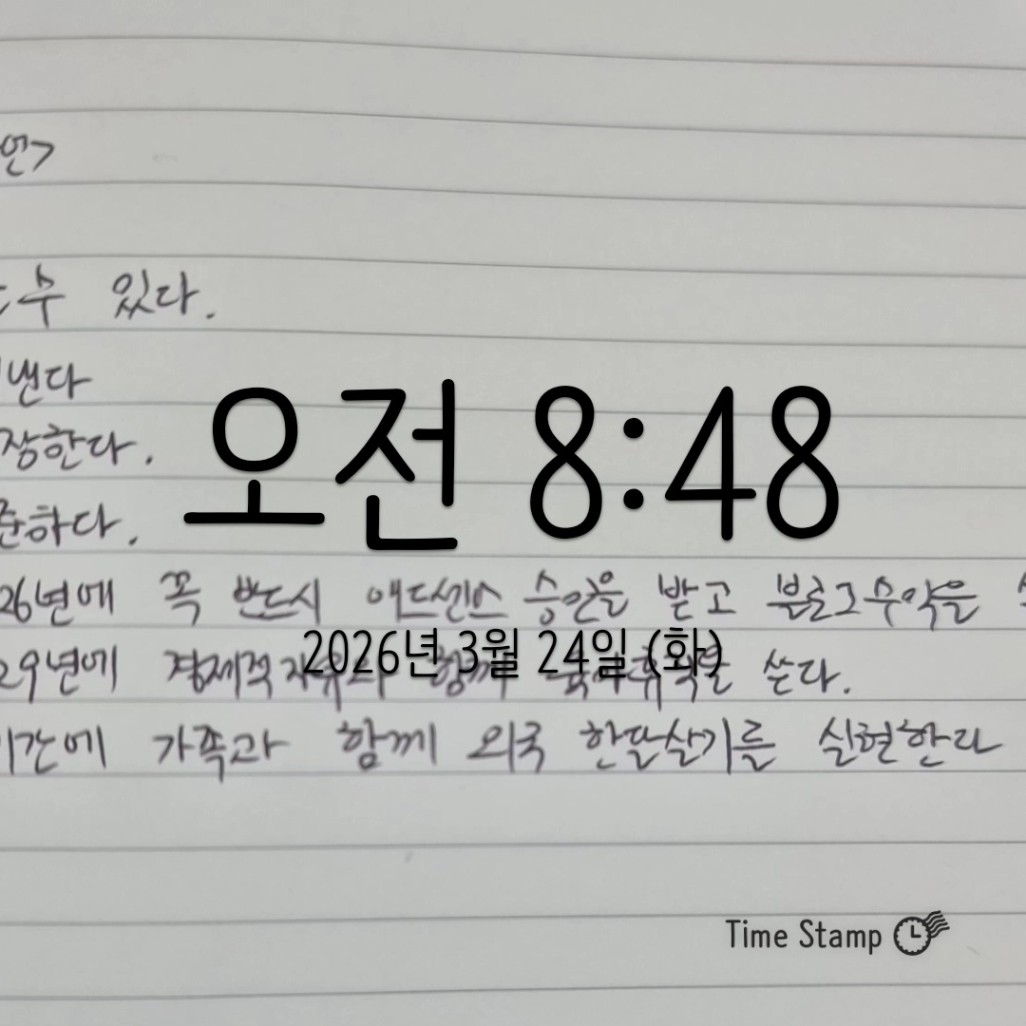 언>
수 있다.
낸다
장한다.
준하다.
오전 8:48
26년에 꼭 반드시 애드센스 승인을 받고 블로그수익을
2026년 3월 24일 (화)
29년에 경제적 함께 쓴다.
기간에 가족과 함께 외국 한달살기를 실현한다
Time Stamp